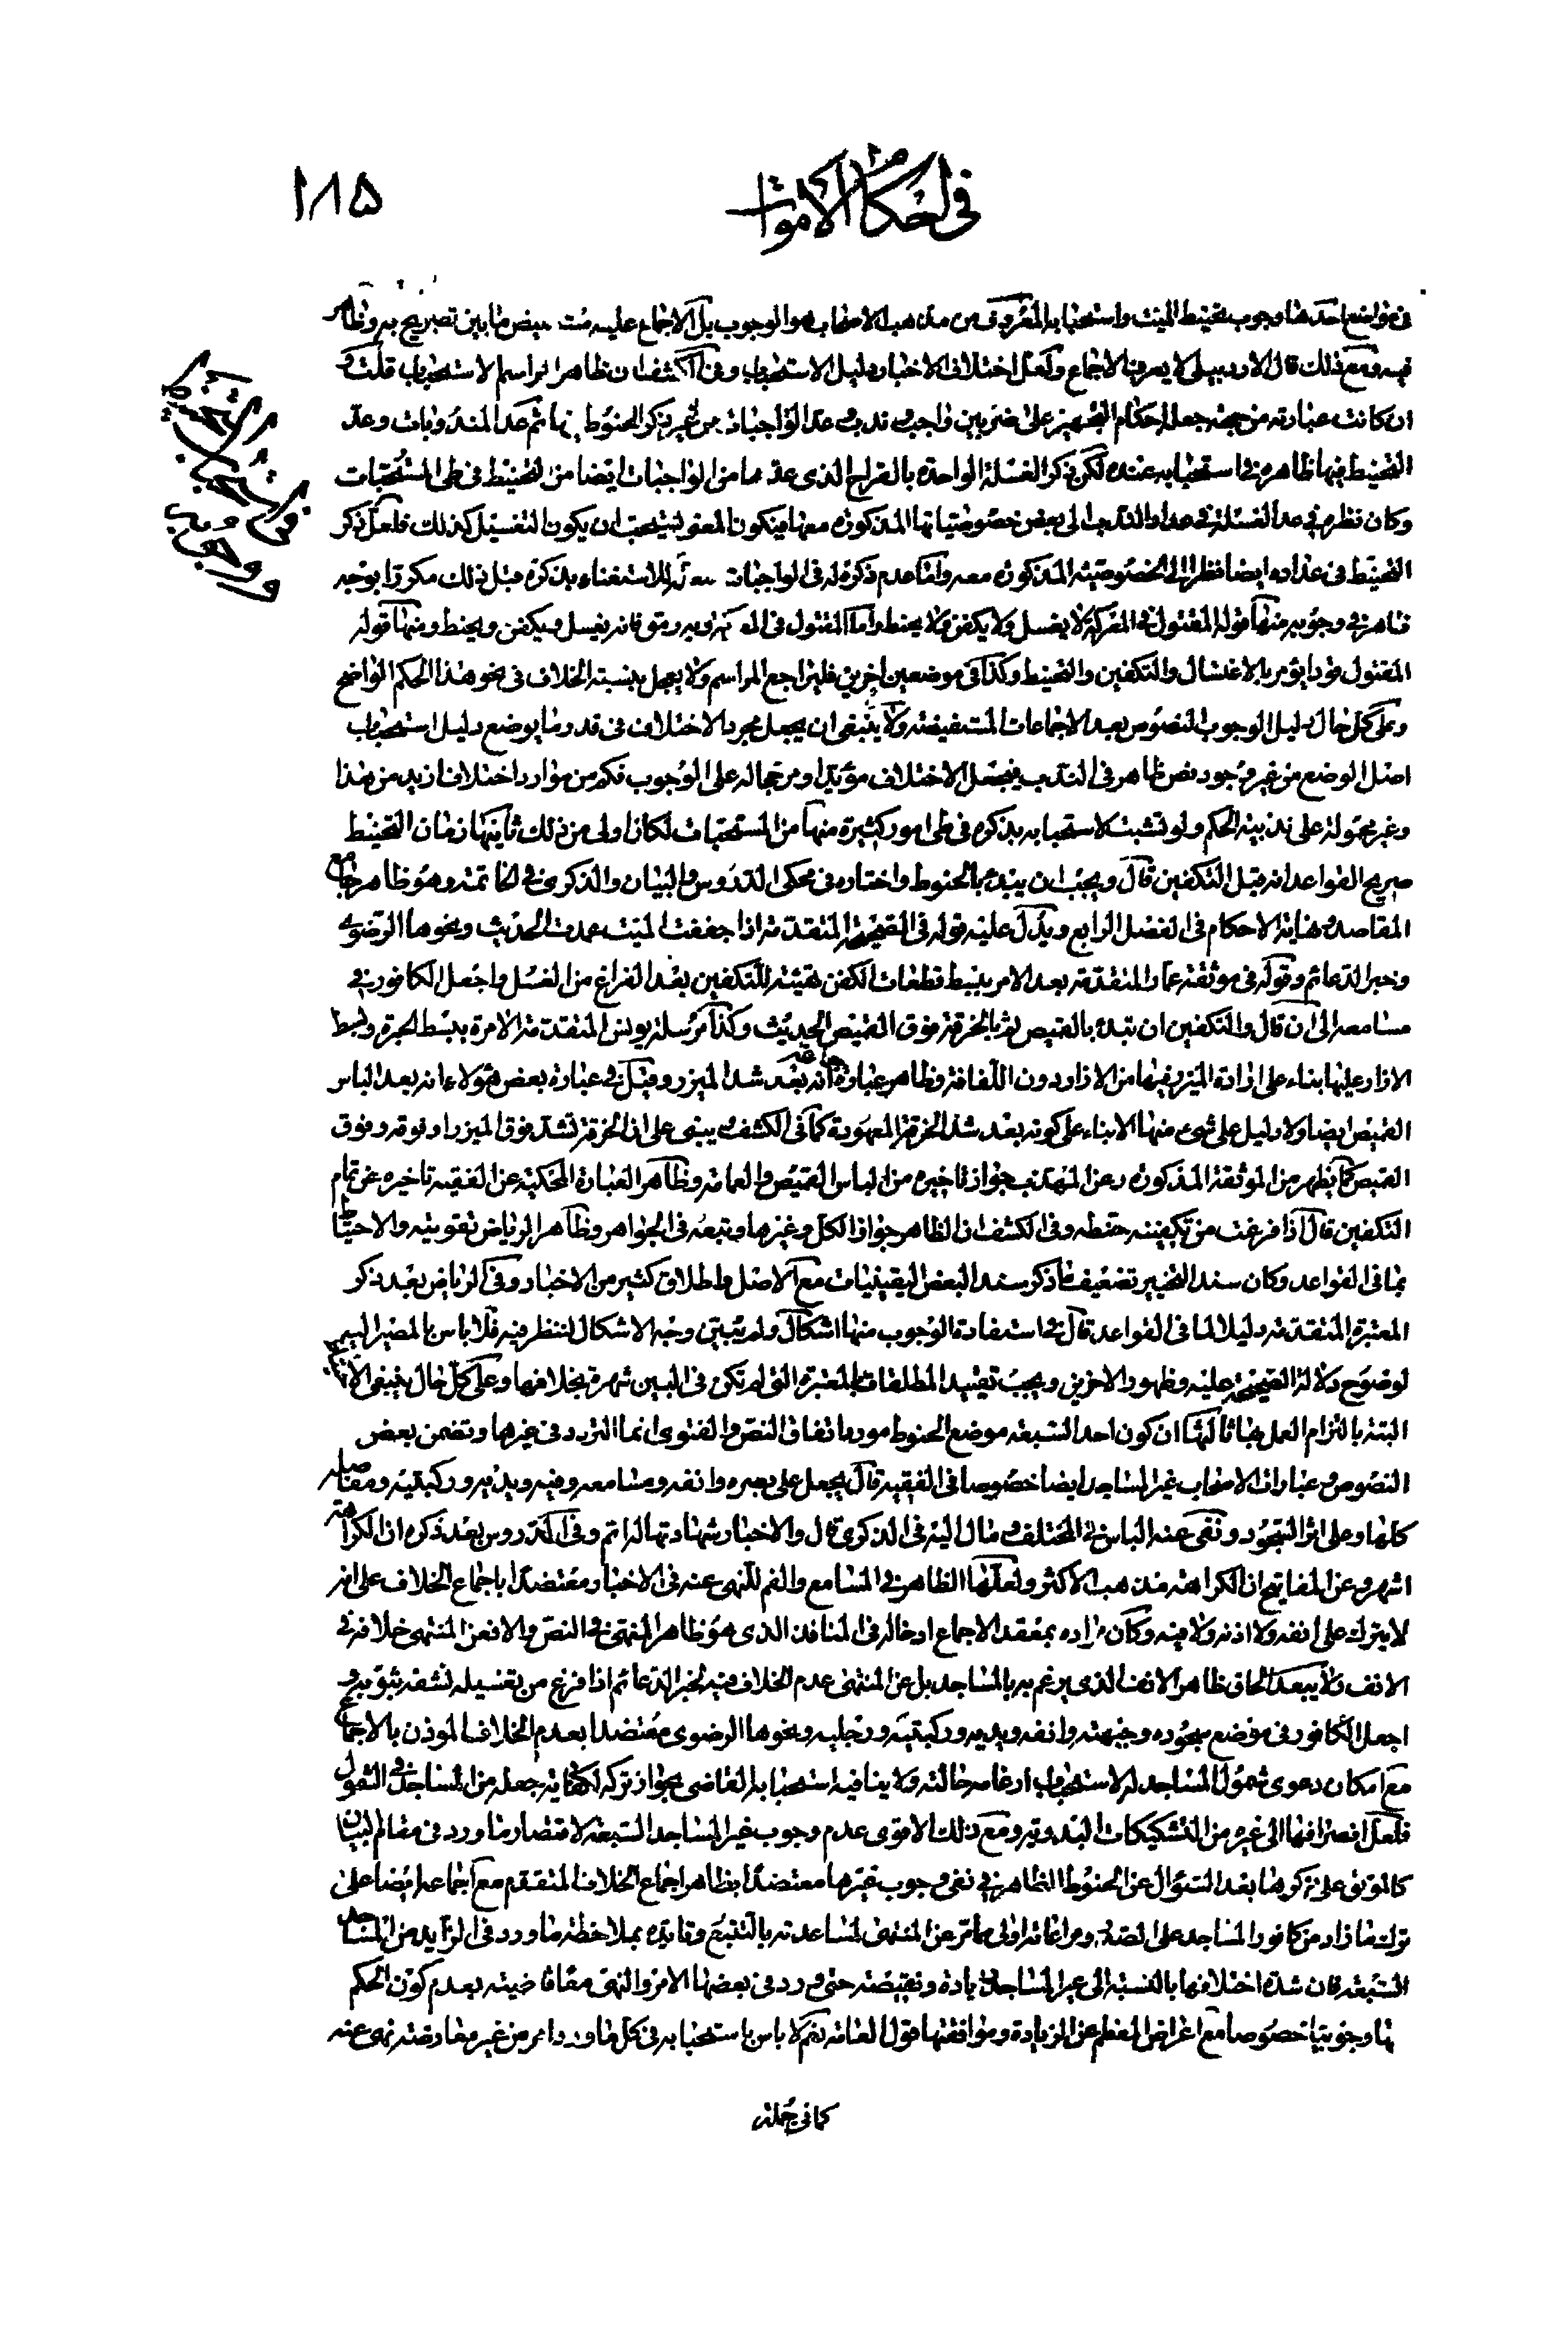 في احكام الاموات
١٨٥
في مواضع احدها وجوب تحنيط الميت واستحبابه المعروف من مذهب الاصحاب هو الوجوب بل الاجماع عليه مستفيض ما بين تصريح به وظاهر
فيه ومع ذلك قال الاردبيلي لا يعرف الاجماع ولعل اختلاف الاخبار دليل الاستحباب وفي الكشف ان ظاهر المراسم الاستحباب قلت و
ان كانت عبارته من حيث جعل احكام التجهيز على ضربين واجب وندب وعد الواجبات من غير ذكر الحنوط فيها ثم عد المندوبات وعد
التحنيط فيها ظاهرة في استحبابه عنده لكن ذكر الغسلة الواحدة بالقراح الذي عدها من الواجبات ايضا من التحنيط في طي المستحبات
وكان نظره في عد الغسلة في عداد الندب الى بعض خصوصياتها المذكورة معها فيكون المعنى يستحب ان يكون التغسيل كذلك فلعل ذكر
التحنيط في عداده ايضا نظرا الى الخصوصية المذكورة معه واما عدم ذكره له في الواجبات للاستغناء بذكره قبل ذلك مكررا بوجه
ظاهر في وجوبه منها قوله المقتول في المعركة لا يغسل ولا يكفن ولا يحنط واما المقتول في المعركة وبه رمق فانه يغسل ويكفن ويحنط ومنها قوله
المقتول قودا يؤمر بالاغتسال والتكفين والتحنيط وكذا في موضعين اخرين فليراجع المراسم ولا يعجل بنسبة الخلاف في نحو هذا الحكم الواضح
وعلى كل حال دليل الوجوب النصوص بعد الاجماعات المستفيضة ولا ينبغي ان يجعل مجرد الاختلاف في قدر ما يوضع دليل استحباب
اصل الوضع من غير وجود نص ظاهر في الندب فيجعل الاختلاف مؤيدا ومرجحا له على الوجوب فكم من موارد اختلاف ازيد من هذا
وغير محمولة على ندبية الحكم ولو تشبث لاستحبابه بذكره في طي امور كثيرة منها من المستحبات لكان اولى من ذلك ثانيها زمان التحنيط
صريح القواعد انه قبل التكفين قال ويجب ان يبدء بالحنوط واختاره في محكي الدروس والبيان والذكرى في الخاتمة وهو ظاهر جامع
المقاصد ونهاية الاحكام في الفصل الرابع ويدل عليه قوله في الصحيحة المتقدمة اذا جففت الميت عمدت الحديث ونحوها الرضوي
وخبر الدعائم وقوله في موثقة عمار المتقدمة بعد الامر ببسط قطعات الكفن تهيئة للتكفين بعد الفراغ من الغسل واجعل الكافور في
مسامعه الى ان قال والتكفين ان تبدء بالقميص ثم بالخرقة فوق القميص الحديث وكذا مرسلة يونس المتقدمة الامرة ببسط الحبرة وبسط
الازار عليها بناء على ارادة الميزر فيها من الازار دون اللفافة وظاهر عبارة جماعة انه بعد شد الميزر وقيل في عبارة بعض هؤلاء انه بعد الباس
القميص ايضا ولا دليل على شيء منها الا بناء على كونه بعد شد الخرقة المعهودة كما في الكشف يبنى على ان الخرقة تشد فوق الميزر او فوقه وفوق
القميص كما يظهر من الموثقة المذكورة وعن المهذب جواز تاخيره من الباس القميص والعمامة وظاهر العبارة المحكية عن الفقيه تاخيره عن تمام
التكفين قال اذا فرغت من تكفينه حنطه وفي الكشف ان الظاهر جواز الكل وغيرها وتبعه في الجواهر وظاهر الرياض تقويته والاحتياط
بما في القواعد وكان سند التخيير تضعيف ما ذكر سندا لبعض اليقينيات مع الاصل واطلاق كثير من الاخبار وفي الرياض بعد ذكر
المعتبرة المتقدمة دليلا لما في القواعد قال في استفادة الوجوب منها اشكال ولم يتبين وجه الاشكال لننظر فيه فلا باس بالمصير اليه
لوضوح دلالة الصحيحة عليه وظهور الاخرين ويجب تقييد المطلقات بالمعتبرة التي لم تكن في البين شهرة بخلافها وعلى كل حال ينبغي
البتة بالتزام العمل بها ثالثها ان كون احد السبعة موضع الحنوط مورد اتفاق النص والفتوى انما التردد في غيرها وتضمن بعض
النصوص وعبارات الاصحاب غير المساجد ايضا خصوصا في الفقيه قال يجعل على بصره وانفه ومسامعه وفيه ويديه وركبتيه ومفاصله
كلها وعلى اثر السجود ونفى عنه الباس في المختلف ومال اليه في الذكرى قال والاخبار شهادتها له اتم وفي الدروس بعد ذكره ان الكراهة
اشهر وعن المفاتيح ان الكراهة مذهب الاكثر ولعلها الظاهر في المسامع والفم للنهي عنه في الاخبار معتضدا باجماع الخلاف على انه
لا يترك على انفه ولا اذنه ولا فيه وكان مراده بمعقد الاجماع ادخاله في المنافذ الذي هو ظاهر المنهي في النص والا فعن المنتهى خلافه في
الانف ولا يبعد الحاق ظاهر الانف الذي يرغم به بالمساجد بل عن المنتهى عدم الخلاف فيه لخبر الدعائم اذا فرغ من تغسيله نشفه بثوب و
اجعل الكافور في موضع سجوده وجبهته وانفه ويديه وركبتيه ورجليه ونحوها الرضوي معتضدا بعدم الخلاف الموذن بالاجماع
مع امكان دعوى شمول المساجد له لاستحباب ارغامه حالته ولا ينافيه استحبابه القاضي بجواز تركه لكفاية جعله من المساجد في الشمول
فلعل انصرافها الى غيره من التشكيكات البدوية ومع ذلك الاقوى عدم وجوب غير المساجد السبعة لاقتصار ما ورد في مقام البيان
كالموثق على ذكرها بعد السؤال عن الحنوط الظاهر في نفي وجوب غيرها معتضدا بظاهر اجماع الخلاف المتقدم مع اجماعه ايضا على
ترك ما زاد من كافور المساجد على الصدر ومراعاته اولى مما مر عن المنتهى لمساعدته بالتتبع وتايده بملاحظة ما ورد في الزايد من المساجد
السبعة فان شدة اختلافها بالنسبة الى غير المساجد زيادة ونقيصة حتى ورد في بعضها الامر والنهي معا قاضية بعدم كون الحكم
بها وجوبيا خصوصا مع اعراض المعظم عن الزيادة وموافقتها قول العامة نعم لا باس باستحبابه في كل ما ورد امر من غير معارضته نهي عنه
كما في جملة